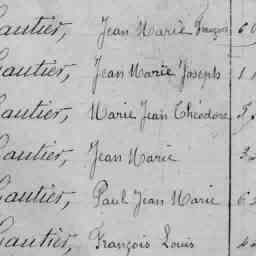 Gautier, Jean Marie François
Gautier, Jean Marie Joseph
Gautier, Marie Jean Théodore
Gautier, Jean Marie
Gautier, Paul Jean Marie
Gautier, François Louis